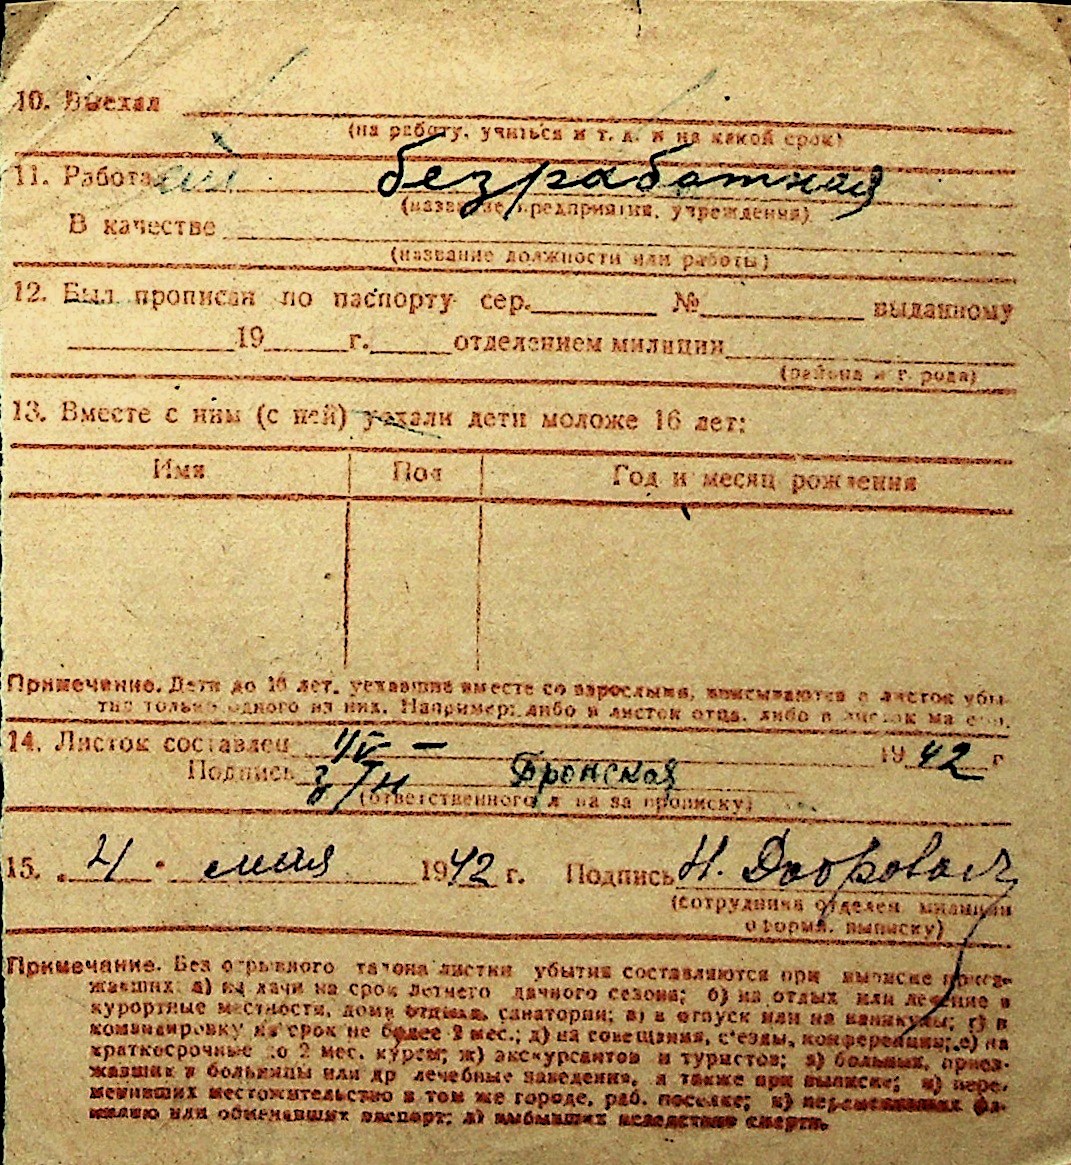 10. Выехал
(на работу, учиться и т. д. и на какой срок)
11. Работа ай безработная
(название предприятия, учреждения)
В качестве
(название должности или работы)
12. Был прописан по паспорту сер. № выданному
19 г. отделением милиции
(района и города)
13. Вместе с ним (с ней) уехали дети моложе 16 лет:
Имя Пол Год и месяц рождения
Примечание. Дети до 16 лет, уехавшие вместе со взрослыми, вписываются в листок убы-
тия только одного из них. Например: либо в листок отца, либо в листок матери.
14. Листок составлен 4/V – 1942 г
Подпись Бронская
(ответственного л на за прописку)
15. 4 • мая 1942 г. Подпись Н. Добровол
(сотрудника отделен. милиции
оформ. выписку)
Примечание. Без отрывного талона листки убытия составляются при выписке приез-
жавших: а) на дачи на срок летнего дачного сезона; б) на отдых или лечение в
курортные местности, дома отдыха, санатории; в) в отпуск или на каникулы; г) в
командировку на срок не более 2 мес.; д) на совещания, съезды, конференции; е) на
краткосрочные до 2 мес. курсы; ж) экскурсантов и туристов; з) больных, приез-
жавших в больницы или др лечебные заведения, а также при выписке; и) пере-
менивших местожительство в том же городе, раб. поселке; к) переменивших фа-
милию или обменявших паспорт; л) выбывших вследствие смерти.